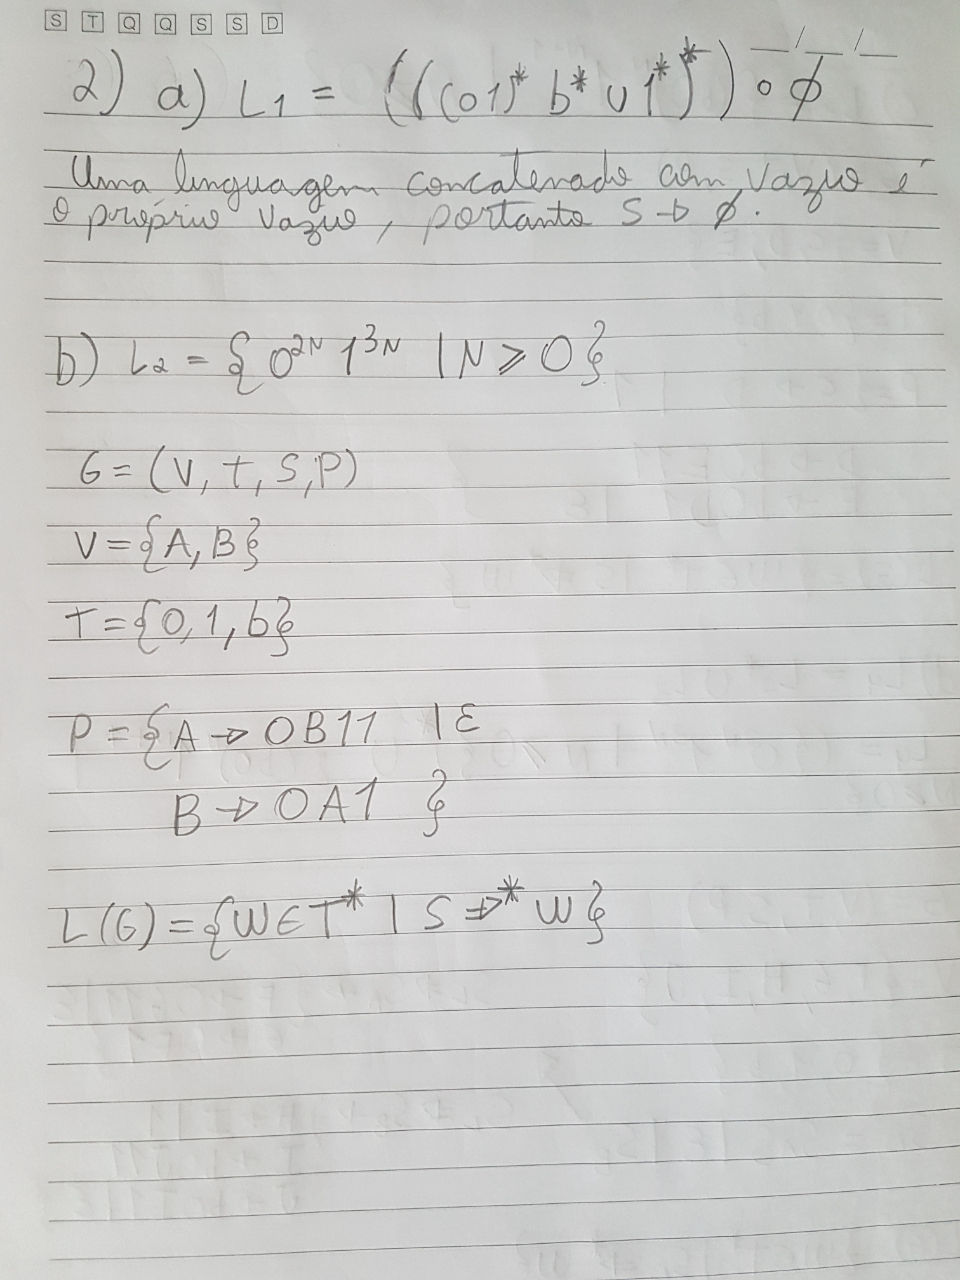 S T Q Q S S D
2) a) L₁ = (((01)* b* ∪ 1*)*) ∘ ∅
Uma linguagem concatenado com vazio é
o próprio vazio, portanto S → ∅.
b) L₂ = { 0²ᴺ 1³ᴺ | N ⩾ 0 }
G = (V, t, S, P)
V = {A, B}
T = {0, 1, b}
P = {A → 0B11 | ε
B → 0A1 }
L(G) = {W ∈ T* | S ⇒* W}